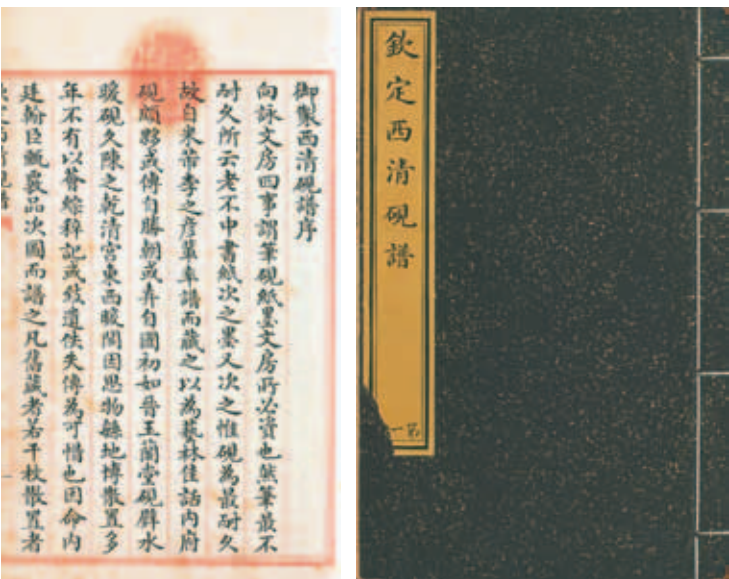 御製西清硯譜序
向詠文房四事謂筆硯紙墨文房所必資也然筆最不
耐久所云老不中書紙次之墨又次之惟硯為最耐久
故自米芾李之彥輩率譜而藏之以為藝林佳話內府
硯頗夥或傳自勝朝或弆自國初如晉王廞堂硯辟水
暖硯久陳之乾清宮東西暖閣因思物緐地博散置多
年不有以薈綜粹記或致遺佚失傳為可惜也因命內
廷翰臣甄覈品次圖而譜之凡舊藏者若干枚散置者
欽定西清硯譜
欽定西清硯譜
第一